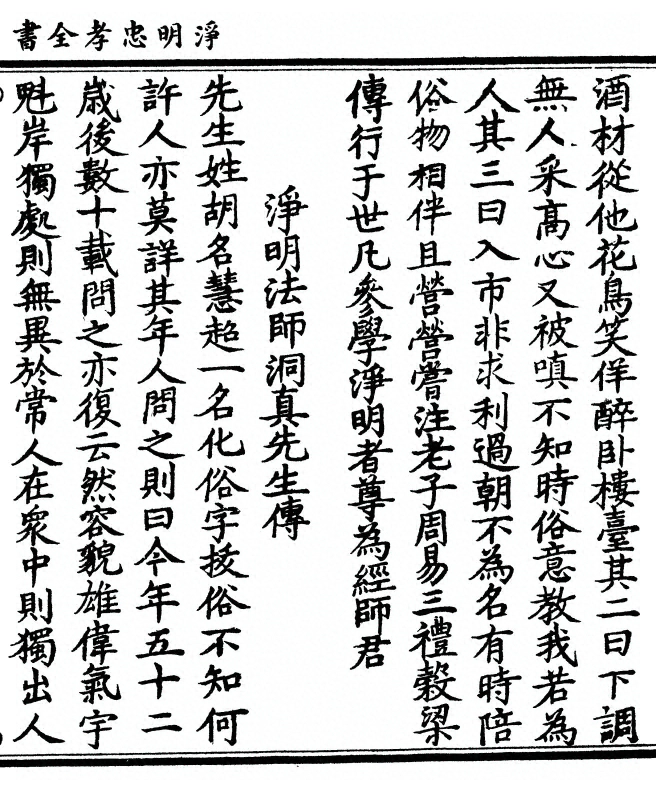 淨明忠孝全書
酒材從他花鳥笑佯醉卧樓臺其二曰下調
無人采高心又被嗔不知時俗意教我若為
人其三曰入市非求利過朝不為名有時陪
俗物相伴且營營嘗注老子周易三禮穀梁
傳行于世凡參學淨明者尊為經師君
淨明法師洞真先生傳
先生姓胡名慧超一名化俗字拔俗不知何
許人亦莫詳其年人問之則曰今年五十二
歲後數十載問之亦復云然容貌雄偉氣宇
魁岸獨處則無異於常人在衆中則獨出人